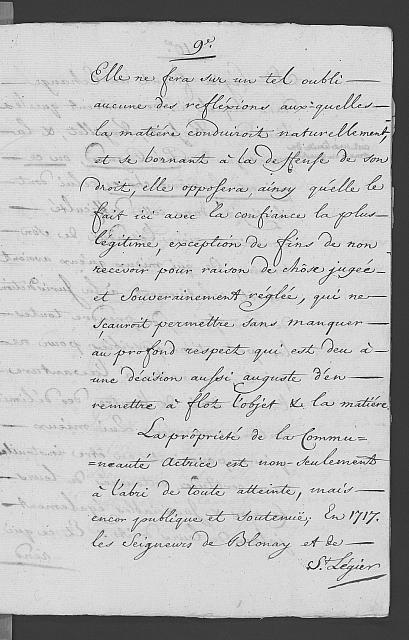 9.e
Elle ne fera sur un tel oubli
aucune des refléxions aux-quelles
la matiére conduiroit naturellement,
et se bornant à la deffense de son
droit, elle opposera, ainsy qu'elle le
fait ici avec la confiance la plus
légitime, exception de fins de non
recevoir pour raison de chôse jugée
et Souverainement réglée, qui ne
scauroit permettre sans manquer
au profond respect qui est deu à
une décision aussi auguste d'en
remettre à flot l'objet & la matiére
La prôpriété de la Commu=
=neauté Actrice est non-seulement
à l'abri de toute atteinte, mais
encor publique et soutenuë; En 1717.
les Seigneurs de Blonay et de
St. Légier